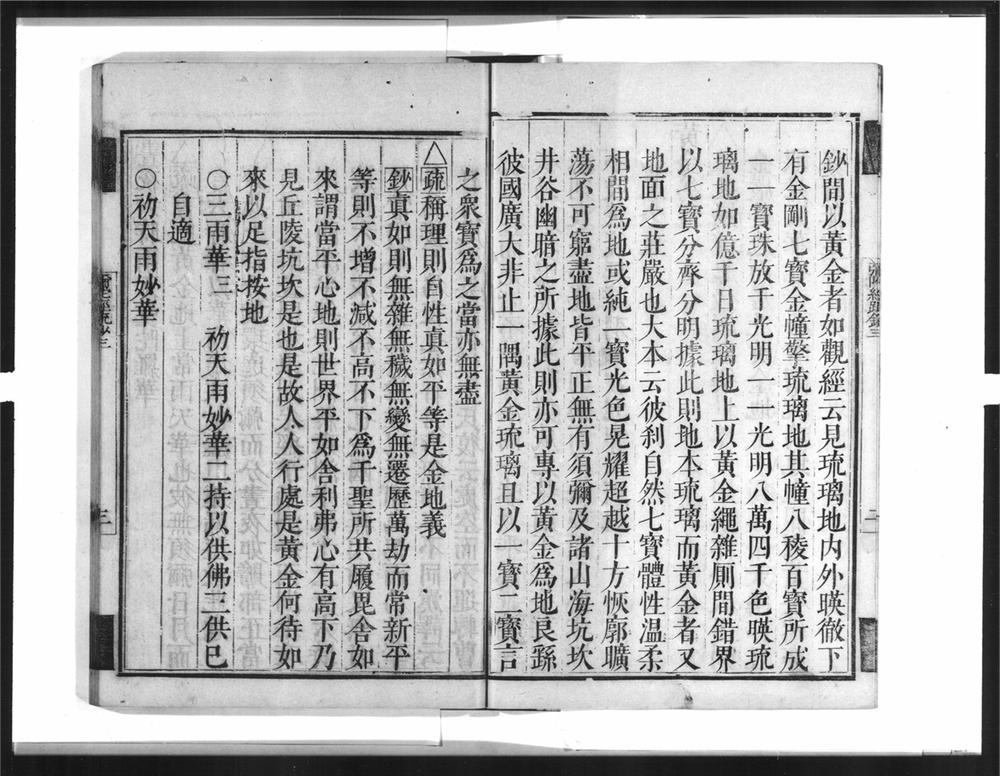 鈔間以黃金者如觀經云見琉璃地內外暎徹下
有金剛七寶金幢擎琉璃地其幢八稜百寶所成
一一寶珠放千光明一一光明八萬四千色暎琉
璃地如億千日琉璃地上以黃金繩雜厠間錯界
以七寶分齊分明據此則地本琉璃而黃金者又
地面之莊嚴也大本云彼刹自然七寶體性温柔
相間爲地或純一寶光色晃耀超越十方恢廓曠
蕩不可窮盡地皆平正無有須彌及諸山海坑坎
井谷幽暗之所據此則亦可專以黃金爲地良繇
彼國廣大非止一隅黃金琉璃且以一寶二寶言
之衆寶爲之當亦無盡
△疏稱理則自性真如平等是金地義
鈔真如則無雜無穢無變無遷歷萬劫而常新平
等則不增不減不高不下爲千聖所共履毘舍如
來謂當平心地則世界平如舍利弗心有高下乃
見丘陵坑坎是也是故人人行處是黃金何待如
來以足指按地
○三雨華三　初天雨妙華二持以供佛三供已
自適
○初天雨妙華